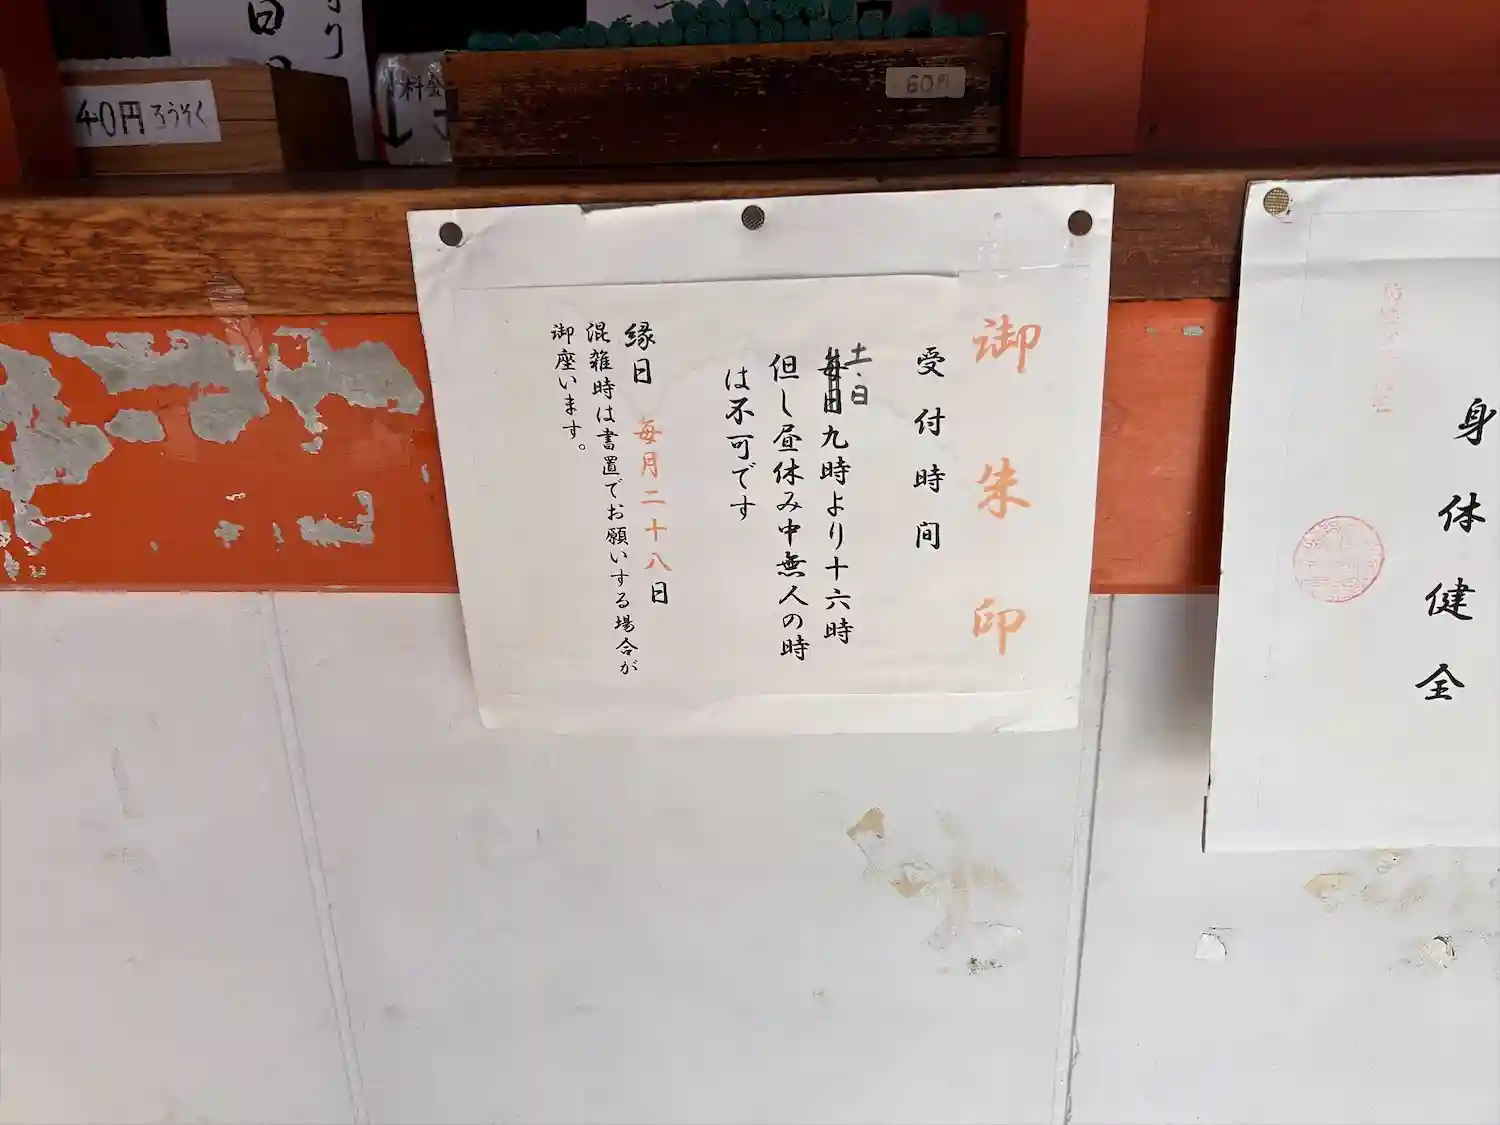 日
り
40円ろうそく
料金
60円
御朱印
受付時間
土・日
毎日九時より十六時
但し昼休み中無人の時
は不可です
縁日 毎月二十八日
混雑時は書置でお願いする場合が
御座います。
身体健全